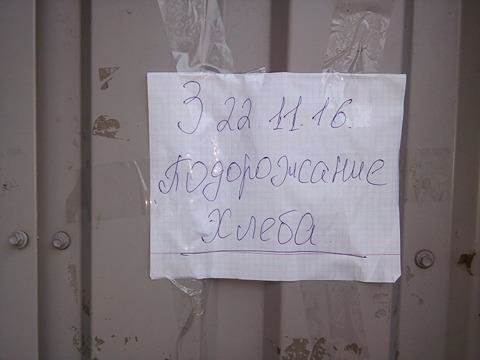 З 22 11 16.
Подорожание
Хлеба